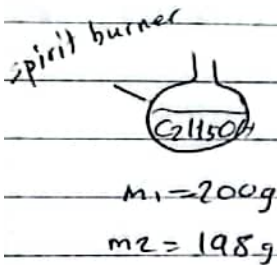 spirit burner
C2H5OH
m1 = 200g
m2 = 198g